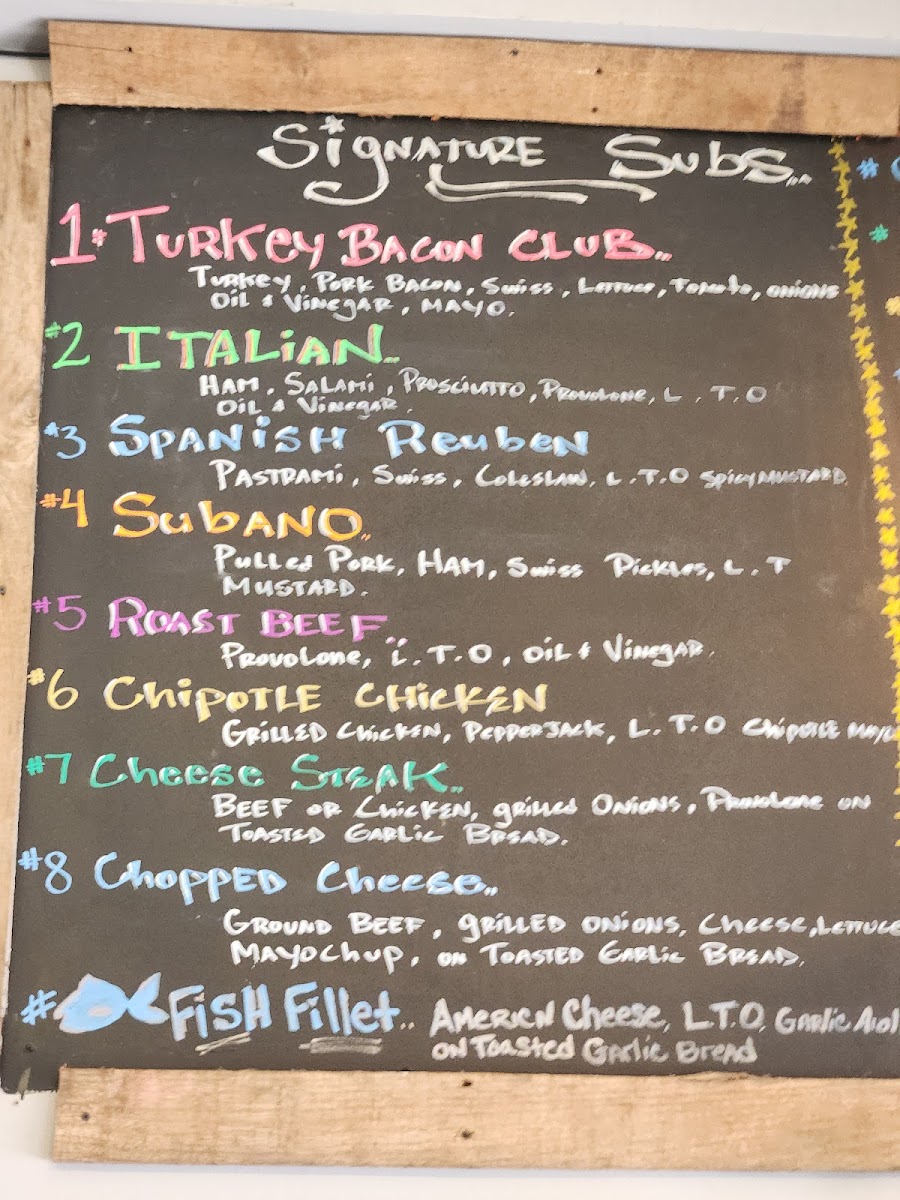 Signature Subs...
1# Turkey Bacon Club..
Turkey, Pork Bacon, Swiss, Lettuce, Tomato, onions
Oil & Vinegar, Mayo.
#2 Italian..
Ham, Salami, Prosciutto, Provolone, L.T.O
Oil & Vinegar.
#3 Spanish Reuben
Pastrami, Swiss, Coleslaw, L.T.O Spicy Mustard
#4 Subano..
Pulled Pork, Ham, Swiss Pickles, L.T
Mustard.
#5 Roast Beef..
Provolone, L.T.O, Oil & Vinegar.
#6 Chipotle Chicken
Grilled Chicken, Pepper Jack, L.T.O Chipotle Mayo
#7 Cheese Steak..
Beef or Chicken, grilled Onions, Provolone on
Toasted Garlic Bread.
#8 Chopped Cheese..
Ground Beef, grilled onions, Cheese, Lettuce
Mayochup, on Toasted Garlic Bread.
# Fish Fillet.. Americn Cheese, L.T.O, Garlic Aiol
on Toasted Garlic Bread